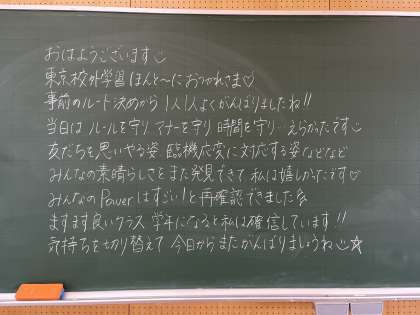 おはようございます
東京校外学習 ほんと〜におつかれさま♡
事前のルート決めから 1人1人よくがんばりましたね!!
当日は ルールを守り マナーを守り 時間を守り…えらかったです
友だちを思いやる姿 臨機応変に対応する姿などなど
みんなの素晴らしさをまた発見できて 私は嬉しかったです
みんなのPowerはすごい!と再確認できました
ますます良いクラス 学年になると私は確信しています!!
気持ちを切り替えて 今日からまたがんばりましょうね☆